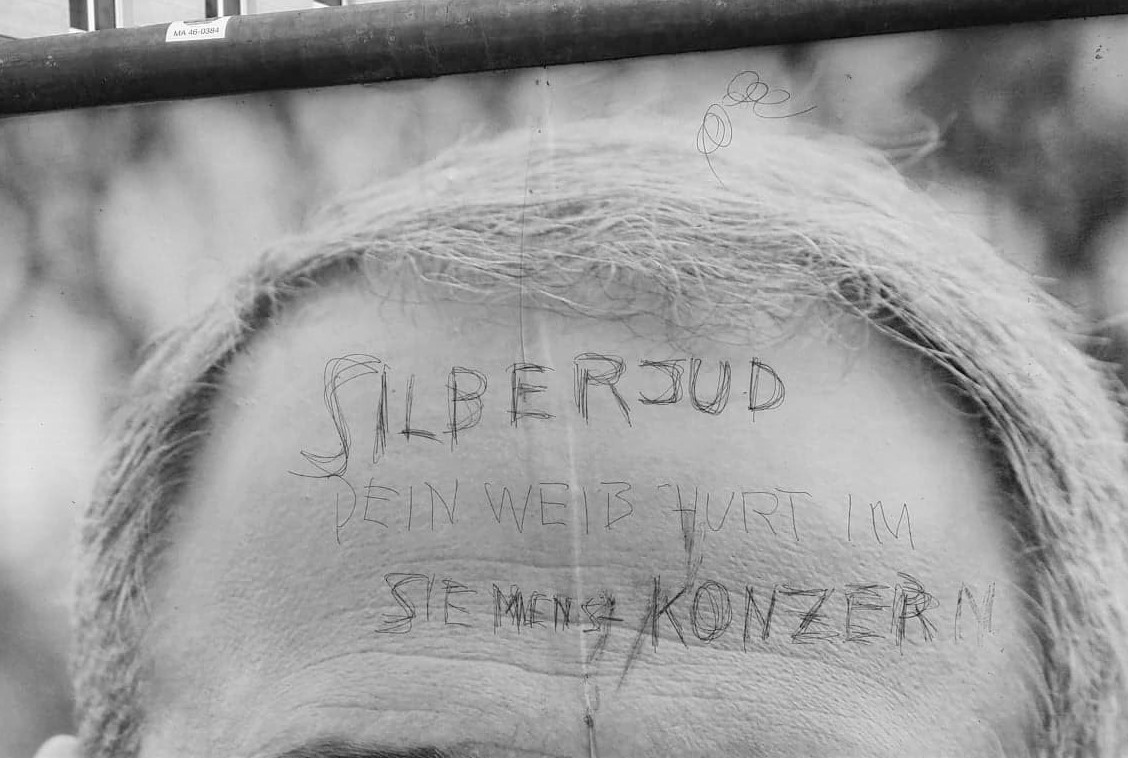 MA 46-0384
SILBERJUD
DEIN WEIB HURT IM
SIEMENS KONZERN